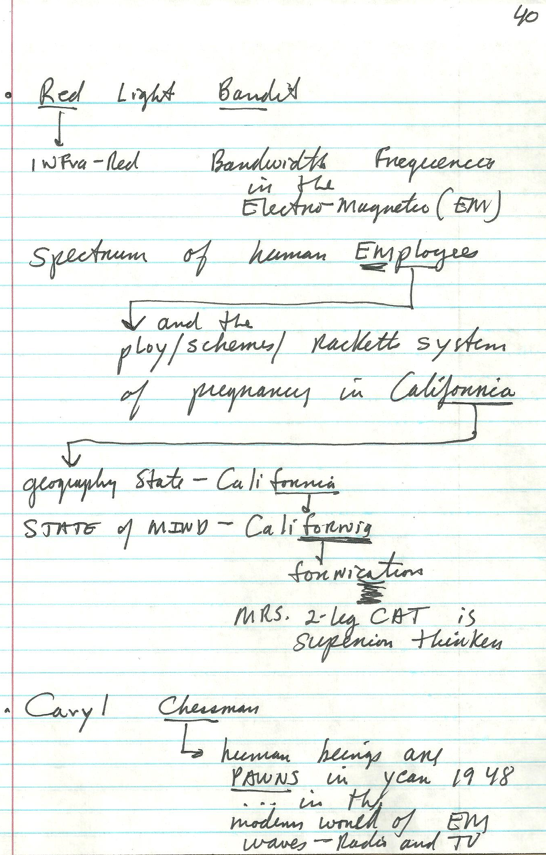 40
• Red Light Bandit
INFra-Red Bandwidth Frequencies
in the
Electro-Magnetic (EM)
Spectrum of human EMployees
and the
ploy/schemes/ Racketts system
of pregnancy in California
geography State - California
STATE of MIND - California
fornication
MRS. 2-leg CAT is
superior thinker
• Caryl Chessman
human beings are
PAWNS in year 1948
... in the
modern world of EM
waves - Radio and TV